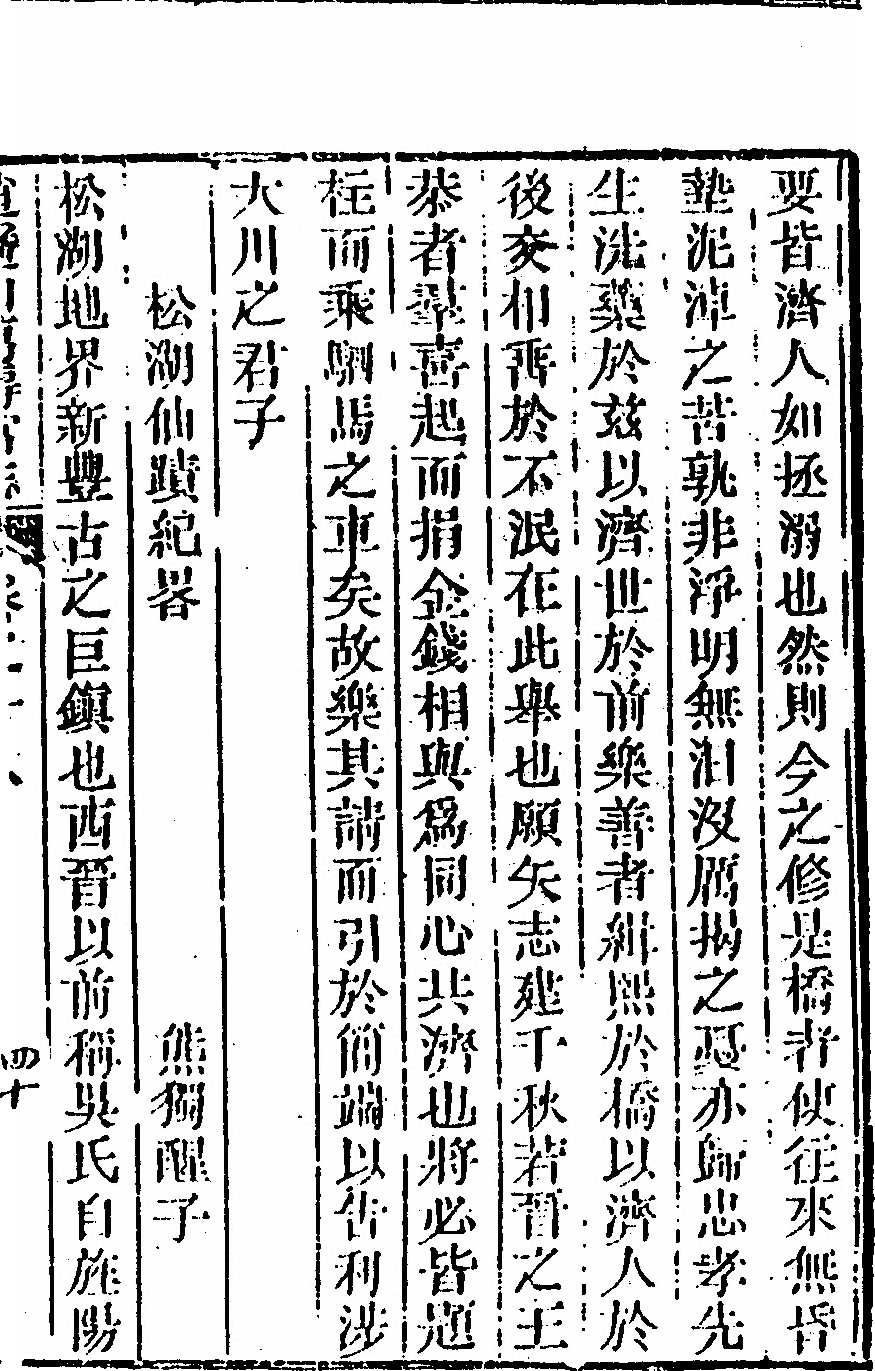 要皆濟人如拯溺也然則今之修是橋者使往來無昏
墊泥淖之苦孰非淨明無汨沒厲揭之憂亦歸忠孝先
生洗藥於兹以濟世於前樂善者緝熙於橋以濟人於
後交相垂於不泯在此舉也願矢志建千秋若晉之王
恭者羣喜起而捐金錢相與爲同心共濟也將必皆題
柱而乘駟馬之車矣故樂其請而引於簡端以告利涉
大川之君子
松湖仙蹟紀畧 熊獨醒子
松湖地界新豐古之巨鎭也西晉以前稱吳氏自旌陽
四十